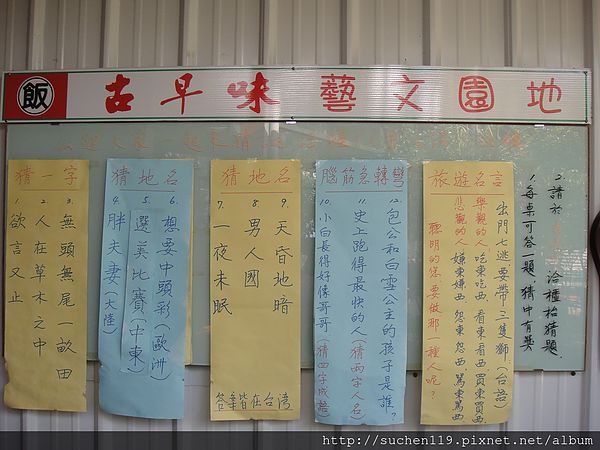 飯 古早味藝文園地
猜一字
1. 欲言又止
2. 人在草木之中
3. 無頭無尾一畝田
猜地名
4. 胖夫妻(大陸)
5. 選美比賽(中東)
6. 想要中頭彩(歐洲)
猜地名
7. 一夜未眠
8. 男人國
9. 天昏地暗
答案皆在台灣
腦筋急轉彎
10. 小白長得好像哥哥(猜四字成語)
11. 史上跑得最快的人(猜兩字人名)
12. 包公和白雪公主的孩子是誰?
旅遊名言
出門七逃要帶三隻獅(台語)
樂觀的人 吃東吃西 看東看西 買東買西
悲觀的人 嫌東嫌西 怨東怨西 罵東罵西
聰明的您要做那一種人呢?
1. 每票可答一題,猜中有獎
2. 請於 洽櫃枱猜題.
http://suchen119.pixnet.net/album